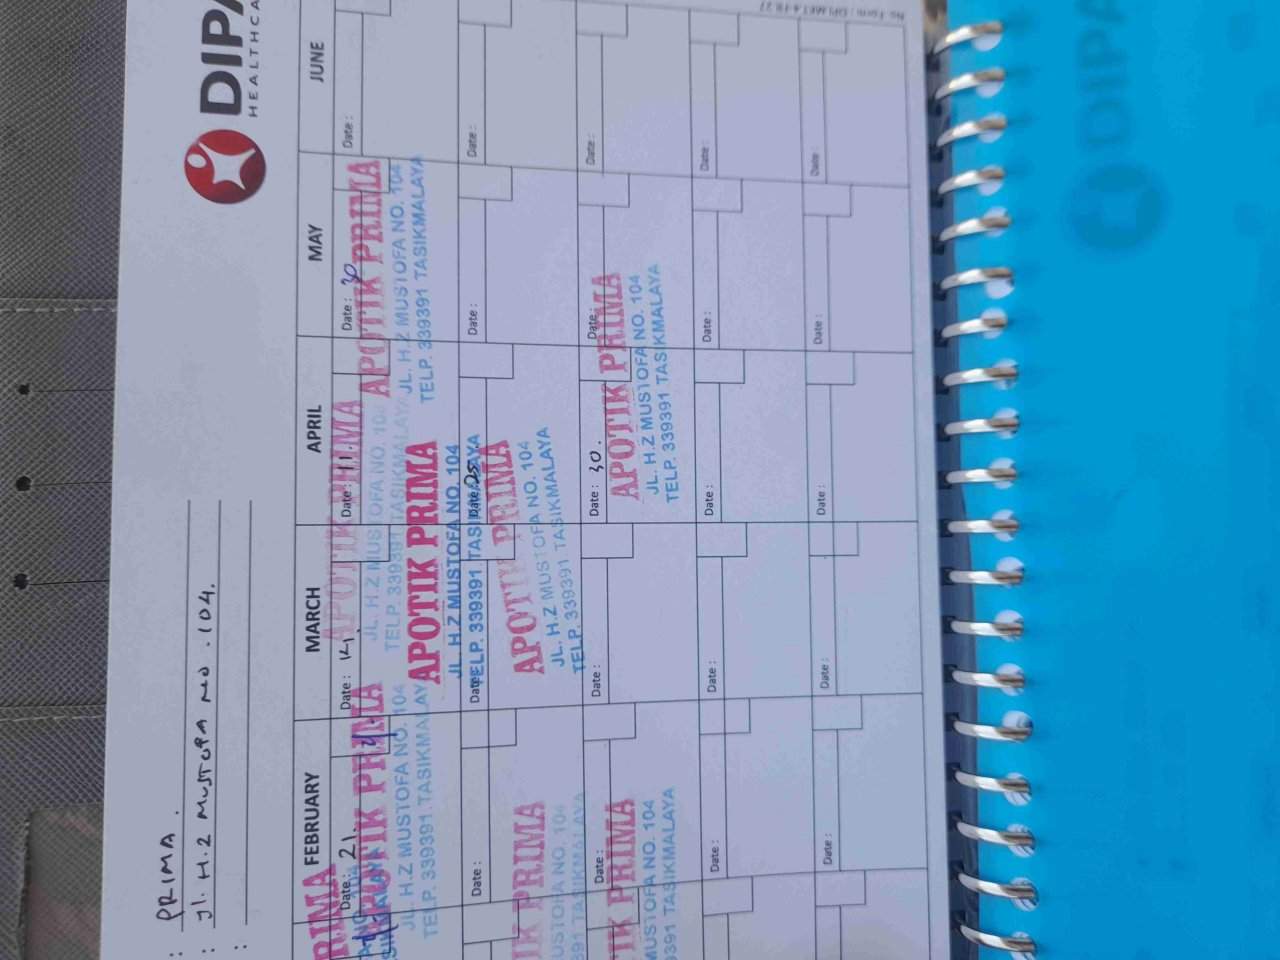 : PRIMA .
: Jl. H.Z MUSTOFA NO .104.
:
DIPA
HEALTHCA
FEBRUARY MARCH APRIL MAY JUNE
Date : 21. Date : 14. Date : 11. Date : 30 Date :
RIMA
APOTIK PRIMA
JL. H.Z MUSTOFA NO. 104
TELP. 339391 TASIKMALAY
APOTIK PRIMA
JL. H.Z MUSTOFA NO. 104
TELP. 339391 TASIKMALAYA
APOTIK PRIMA
JL. H.Z MUSTOFA NO. 104
TELP. 339391 TASIKMALAYA
APOTIK PRIMA
JL. H.Z MUSTOFA NO. 104
TELP. 339391 TASIKMALAYA
Date : Date : Date: 25 Date : Date :
IK PRIMA
MUSTOFA NO. 104
391 TASIKMALAYA
APOTIK PRIMA
JL. H.Z MUSTOFA NO. 104
TELP. 339391 TASIKMALAYA
Date : Date : Date : 30. Date: Date :
TIK PRIMA
MUSTOFA NO. 104
9391 TASIKMALAYA
APOTIK PRIMA
JL. H.Z MUSTOFA NO. 104
TELP. 339391 TASIKMALAYA
Date : Date : Date : Date : Date :
Date : Date : Date : Date : Date :
No. Form :
DIPA